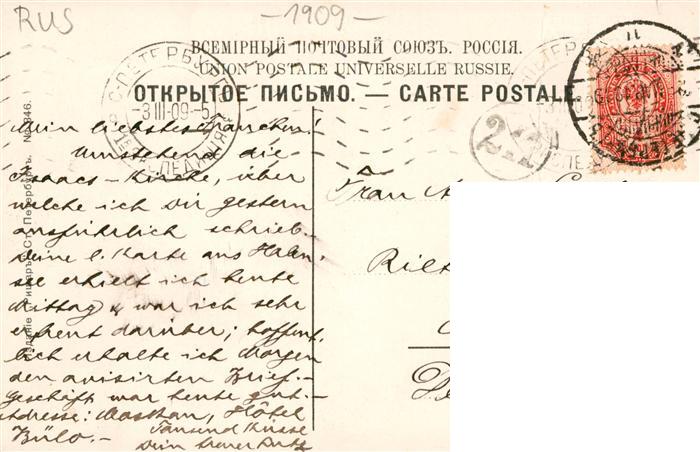 RUS
-1909-
ВСЕМІРНЫЙ ПОЧТОВЫЙ СОЮЗЪ. РОССІЯ.
UNION POSTALE UNIVERSELLE RUSSIE.
ОТКРЫТОЕ ПИСЬМО. — CARTE POSTALE.
С-ПЕТЕРБУРГ
-3 III-09-5
Mein liebstes Frauchen!
Umstehend die
Isaacs-Kirche, über
welche ich Dir gestern
ausführlich schrieb.-
Deine l. Karte aus
erhielt ich heute
Mittag & war ich sehr
erfreut darüber; hoffent
lich erhalte ich Morgen
den avisirten Brief.-
Geschäft war heute gut.-
Adresse: Moskau, Hôtel
Bülo.- Tausend Küsse
Dein treuer
Frau